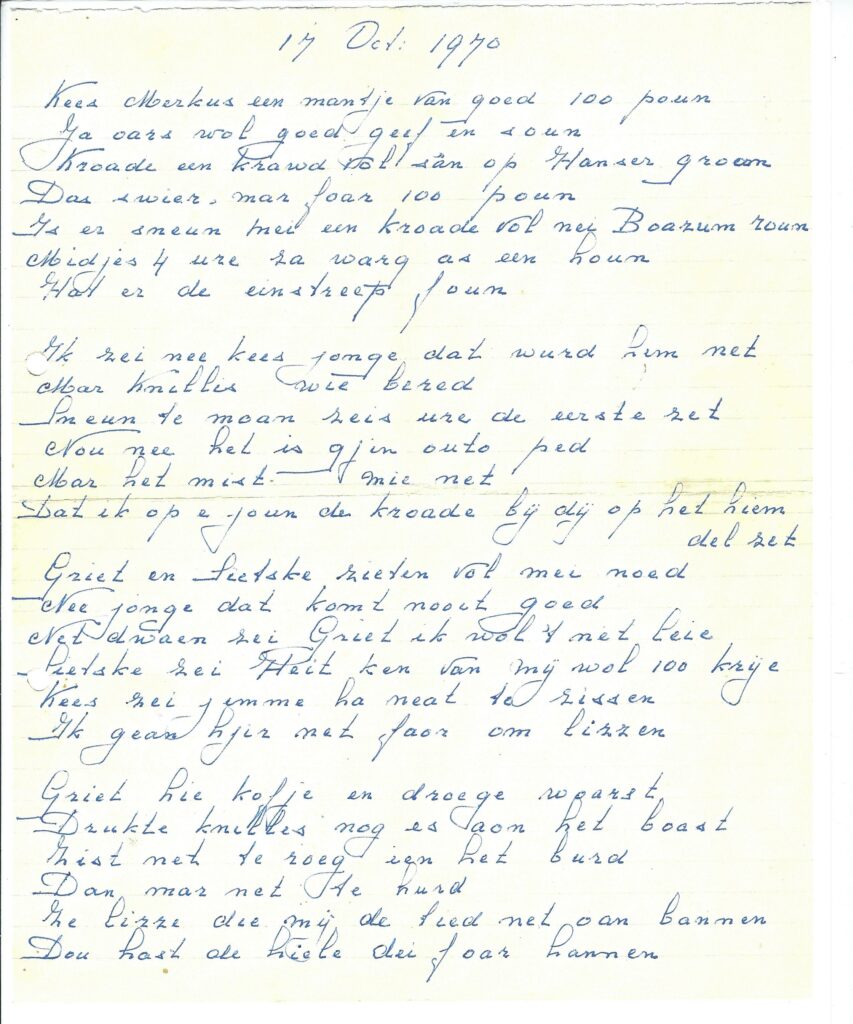 17 Oct: 1970
Kees Merkus een mantje van goed 100 poun
Ja oars wol goed geef en soun
Kroade een krawd vol sân op Hanser groun
Das swier, mar foar 100 poun
Is er sneun mei een kroade vol nei Boazum roun
Midjes 4 ure sa warg as een houn
Hat er de einstreep foun
Ik zei nee kees jonge dat wurd him net
Mar Knillis wie bered
Sneun te moan zeis ure de eerste zet
Nou nee het is gjin outo ped
Mar het mist mie net
Dat ik op e joun de kroade bij dij op het hiem
del zet
Griet en Sietske zieten vol mei noed
Nee jonge dat komt nooit goed
Net dwaen zei Griet ik wol 't net leie
Sietske zei Heit ken van mij wol 100 krije
Kees zei jemme ha neat te zissen
Ik gean hjir net faor om lizzen
Griet hie kofje en droege woarst
Drukte knilles nog es aon het boast
Zist net te roeg ien het burd
Dan mar net te hurd
Ze lizze die mij de tied net oan bannen
Dou hast de hiele dei foar hannen